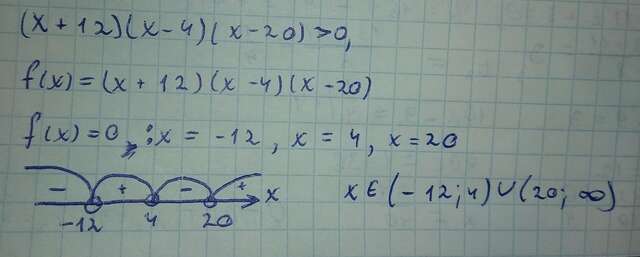 (x + 12)(x - 4)(x - 20) > 0,
f(x) = (x + 12)(x - 4)(x - 20)
f(x) = 0, : x = -12, x = 4, x = 20
- + - + x
-12 4 20
x ∈ (-12; 4) ∪ (20; ∞)